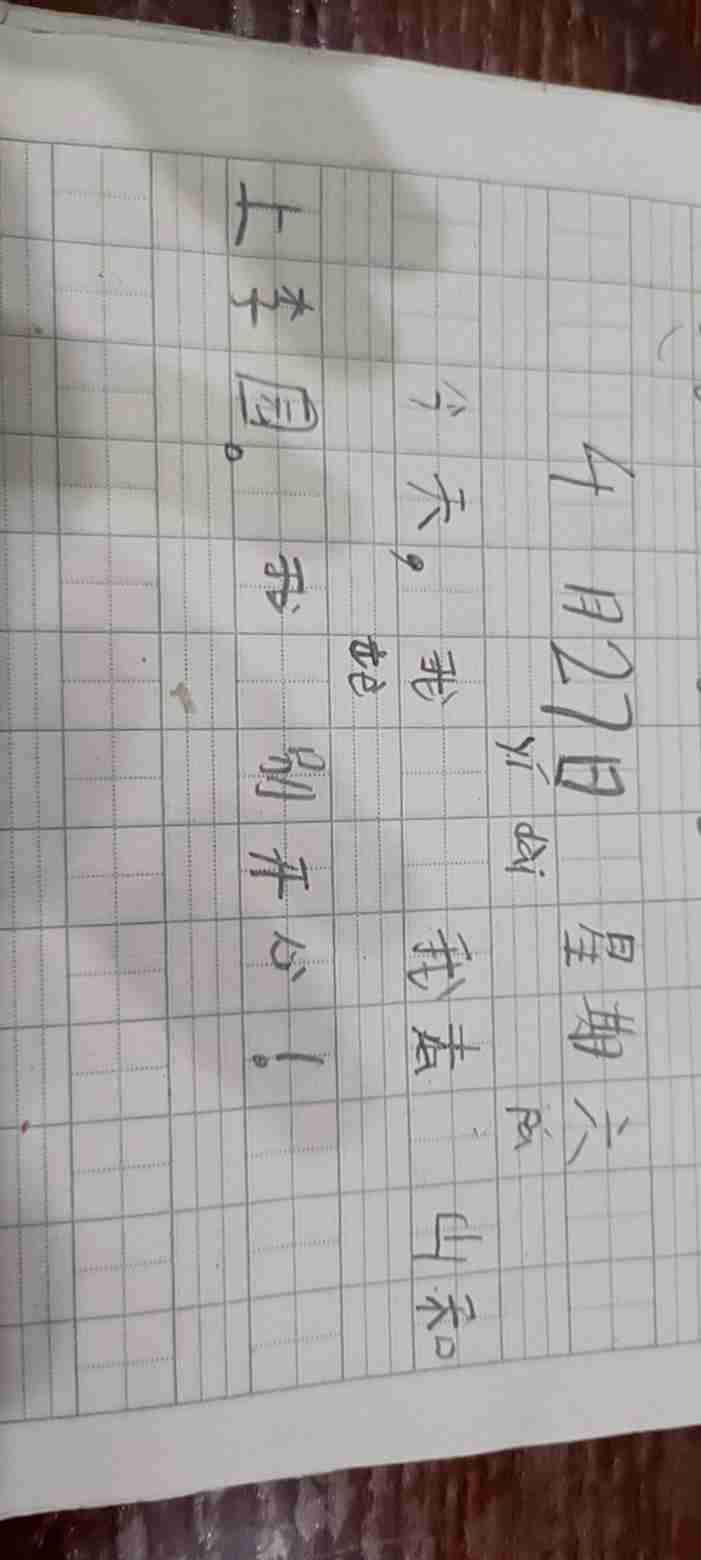 4月27日 星期六
yí dài pá
今天，我 我去 山和
tè
土李园。我 别开心！